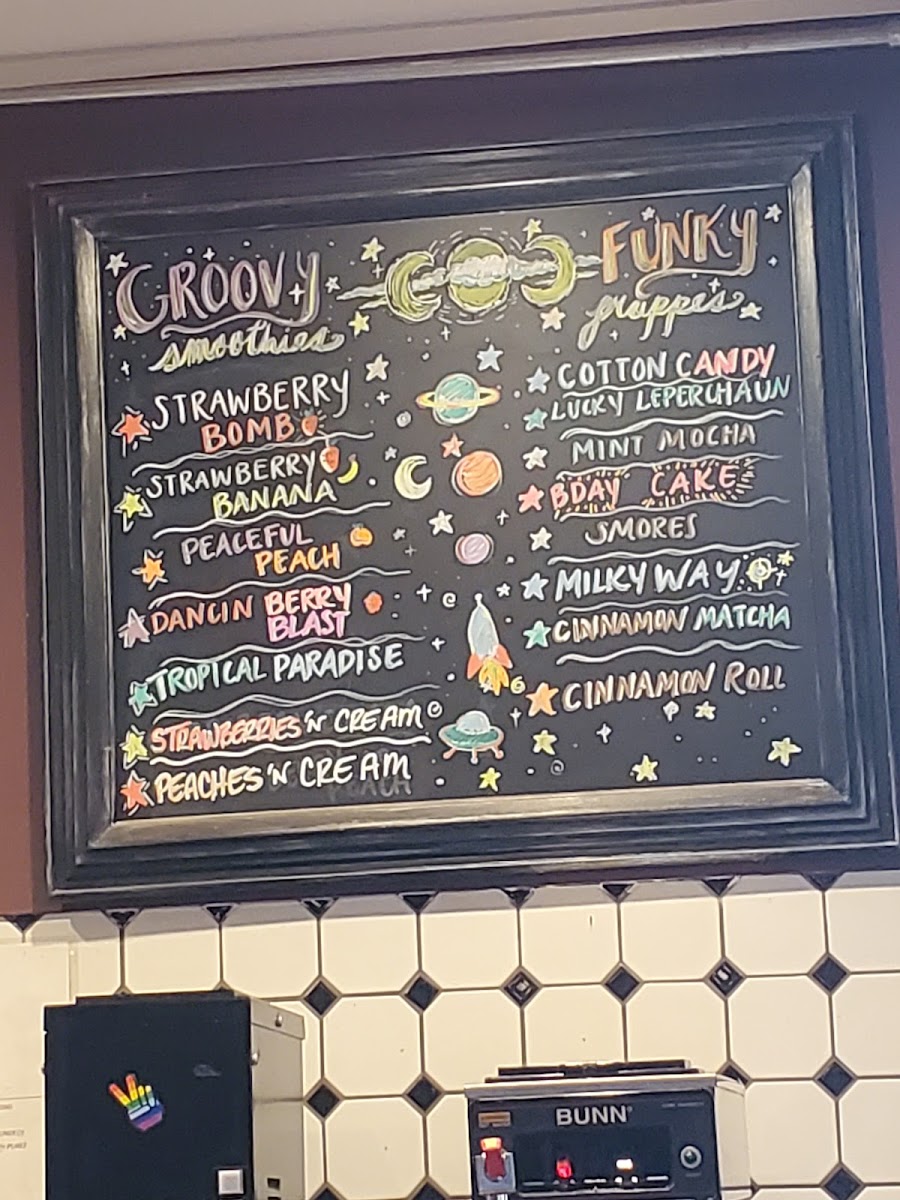 GROOVY
smoothies
STRAWBERRY
BOMB
STRAWBERRY
BANANA
PEACEFUL
PEACH
DANCIN BERRY
BLAST
TROPICAL PARADISE
STRAWBERRIES 'N' CREAM
PEACHES 'N CREAM
FUNKY
frappes
COTTON CANDY
LUCKY LEPERCHAUN
MINT MOCHA
BDAY CAKE
SMORES
MILKY WAY
CINNAMON MATCHA
CINNAMON ROLL
BUNN